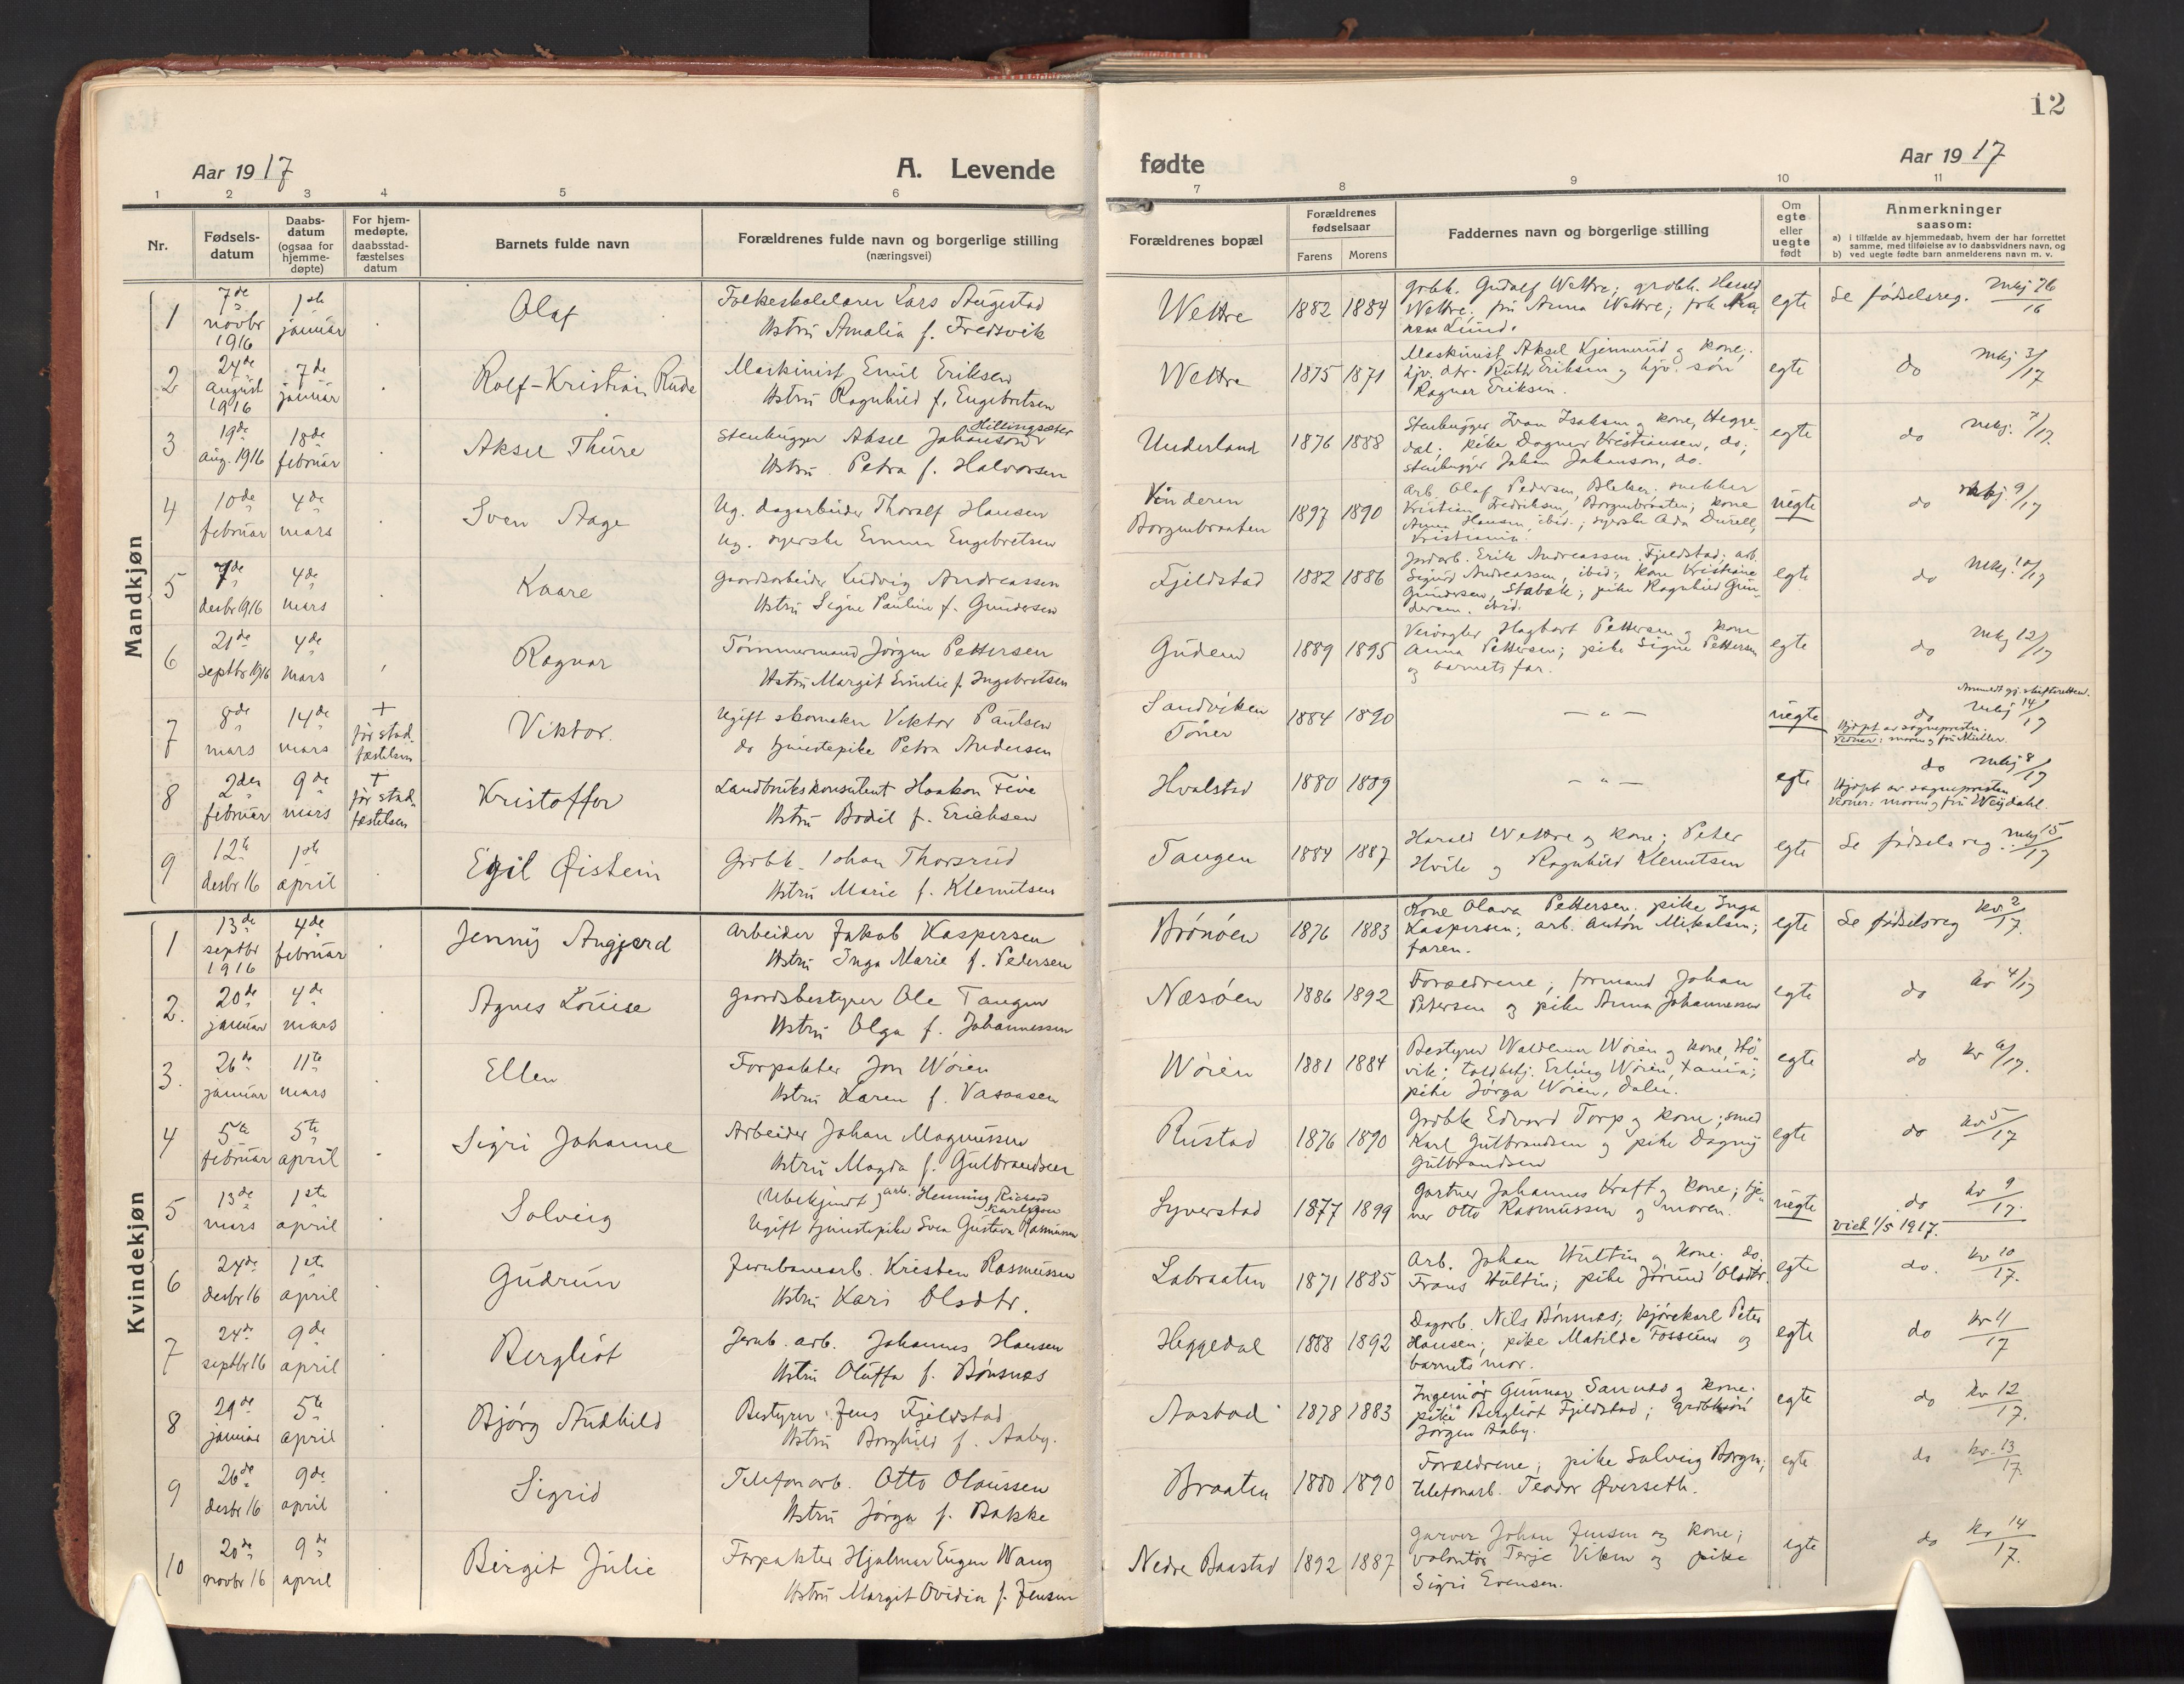 12
Aar 1917
A. Levende
fødte
Aar 1917
1 2 3 4 5 6 7 8 9 10 11
Nr.
Fødsels-
datum
Daabs-
datum
(ogsaa for
hjemme-
døpte)
For hjem-
medøpte,
daabsstad-
fæstelses
datum
Barnets fulde navn
Forældrenes fulde navn og borgerlige stilling
(næringsvei)
Forældrenes bopæl
Forældrenes
fødselsaar
Farens Morens
Faddernes navn og borgerlige stilling
Om
egte
eller
uegte
født
Anmerkninger
saasom:
a) i tilfælde av hjemmedaab, hvem der har forrettet
samme, med tilføielse av to daabsvidners navn, og
b) ved uegte fødte barn anmelderens navn m. v.
Mandkjøn
1
7de
novbr
1916
1ste
januar
Olaf
Folkeskolelærer Lars Augestad
Hstru Amalia f. Fredsvik
Wettre
1882 1884
grbbk. Gudolf Wettre; grdbk. Harald
Wettre; fru Anna Wettre; frk
Lund.
egte
Se fødselsreg. mkj 26/16
2
24de
august
1916
7de
januar
Rolf-Kristian Rude
Maskinist Emil Eriksen
Hstru Ragnhild f. Engebretsen
Wettre
1875 1871
Maskinist Aksel Kjennerud og kone;
hjv. dtr. Ruth Eriksen og hjv. søn
Ragnar Eriksen.
egte
do mkj 3/17
3
19de
aug. 1916
18de
februar
Aksel Thure
Hillingsæter
Stenhugger Aksel Johanson
Hstru Petra f. Halvorsen
Underland
1876 1888
Stenhugger Ivan Isakson og kone, Hegge-
dal; pike Dagmar Kristiansen, do;
stenhugger Johan Johanson, do.
egte
do mkj. 7/17.
4
10de
februar
4de
mars
Sven Aage
Ug. dagarbeider Thoralf Hansen
Ug. syerske Emma Engebretsen
Vinderen
Borgenbraaten
1897 1890
Arb. Olaf Pedersen, Bleker; snekker
Kristian Fredriksen, Borgenbraaten; kone
Anna Hansen, ibid.; syerske Ada Durell,
Kristiania.
uegte
do mkj. 9/17
5
7de
desbr 1916
4de
mars
Kaare
Gaardsarbeider Ludvig Andreassen
Hstru Signe Pauline f. Gundersen
Fjeldstad
1882 1886
Jordarb. Erik Andreassen, Fjeldstad; arb.
Sigurd Andreassen, ibid; kone Kristiane
Gundersen, Stabæk; pike Ragnhild Gun-
dersen, ibid.
egte
do mkj. 10/17
6
21de
septbr 1916
4de
mars
Ragnar
Tømmermand Jørgen Pettersen
Hstru Margit Emilie f. Ingebretsen
Gudem
1889 1895
Veivogter Hagbart Pettersen og kone
Anna Pettersen; pike Signe Pettersen
og barnets far.
egte
do mkj 12/17
7
8de
mars
14de
mars
+
før stad-
fæstelsen
Viktor.
Ugift skomaker Viktor Paulsen
do tjenestepike Petra Andersen
Sandviken
Toner
1884 1890
— " —
uegte
Anmeldt gj. skifteretten.
do mkj 14/17
Hjdøpt av sognepresten.
Vidner: moren og fru Müller.
8
2den
februar
9de
mars
+
før stad-
fæstelsen
Kristoffer
Landbrukskonsulent Haakon Five
Hstru Bodil f. Erichsen
Hvalstad
1880 1889
— " —
egte
do mkj 8/17
Hjdøpt av sognepresten
Vidner: moren og fru Weydahl.
9
12te
desbr 16
1ste
april
Egil Øistein
Grdbk. Johan Thorsrud
Hstru Marie f. Klemetsen
Tangen
1884 1887
Harald Wettre og kone; Peter
Hvile og Ragnhild Klemetsen
egte
Se fødselsreg. mkj 15/17
Kvindekjøn
1
13de
septbr
1916
4de
februar
Jenny Angjerd
Arbeider Jakob Kaspersen
Hstru Inga Marie f. Pedersen
Brønøen
1876 1883
Kone Olava Pettersen; pike Inga
Kaspersen; arb. Anton Mikalsen;
faren.
egte
Se fødselsreg kv. 2/17.
2.
20de
januar
4de
mars
Agnes Louise
Gaardsbestyrer Ole Tangen
Hstru Olga f. Johannessen
Næsøen
1886 1892
Forældrene, formand Johan
Petersen og pike Anna Johannessen
egte
do kv 4/17
3.
26de
januar
11te
mars
Ellen
Forpakter Jon Wøien
Hstru Karen f. Vasaasen
Wøien
1881 1884
Bestyrer Waldemar Wøien og kone, Hø-
vik; toldbetj. Erling Wøien, Xania;
pike Jørga Wøien, Dalen.
egte
do kv 6/17.
4
5te
februar
5te
april
Sigri Johanne
Arbeider Johan Magnussen
Hstru Magda f. Gulbrandsen
Rustad
1876 1890
Grdbk Edvard Torp og kone; smed
Karl Gulbrandsen og pike Dagny
Gulbrandsen
egte
do kv 5/17
5
13de
mars
1ste
april
Solveig
(Ubekjendt) arb. Henning Richard
Karlsson
Ugift tjenestepike Svea Gustava Rasmussen
Syverstad
1877 1899
Gartner Johannes Kraft og kone; tje-
ner Otto Rasmussen og moren.
uegte
do kv 9/17.
viet 1/5 1917.
6
24de
desbr 16
1ste
april
Gudrun
Jernbanearb. Kristen Rasmussen
Hstru Kari Olsdtr.
Labraaten
1871 1885
Arb. Johan Hultin og kone; do.
Frans Hultin; pike Jørund Olsdtr.
egte
do. kv 10/17.
7
24de
septbr 16
9de
april
Bergliot
Jernb. arb. Johannes Hansen
Hstru Oluffa f. Bønsnes
Heggedal
1888 1892
Dagarb. Nils Bønsnes; kjørekarl Peter
Hansen; pike Matilde Fossum og
barnets mor.
egte
do kv 11/17
8
29de
januar
5te
april
Bjørg Audhild
Bestyrer Jens Fjeldstad
Hstru Borghild f. Aaby.
Aastad
1878 1883
Ingeniør Gunnar Sannes og kone;
pike Bergliot Fjeldstad; grdbksøn
Jørgen Aaby.
egte
do kv 12/17.
9
26de
desbr 16
9de
april
Sigrid
Telefonarb. Otto Olaussen
Hstru Jørga f. Bakke
Braaten
1880 1890
Forældrene; pike Solveig Borgen;
telefonarb. Teodor Øverseth.
egte
do kv. 13/17
10
20de
novbr 16
9de
april
Birgit Julie
Forpakter Hjalmar Eugen Wang
Hstru Margit Ovidia f. Jensen
Nedre Baastad
1892 1887
Garver Johan Jensen og kone;
volontør Terje Viken og pike
Sigri Evensen.
egte
do kv 14/17.